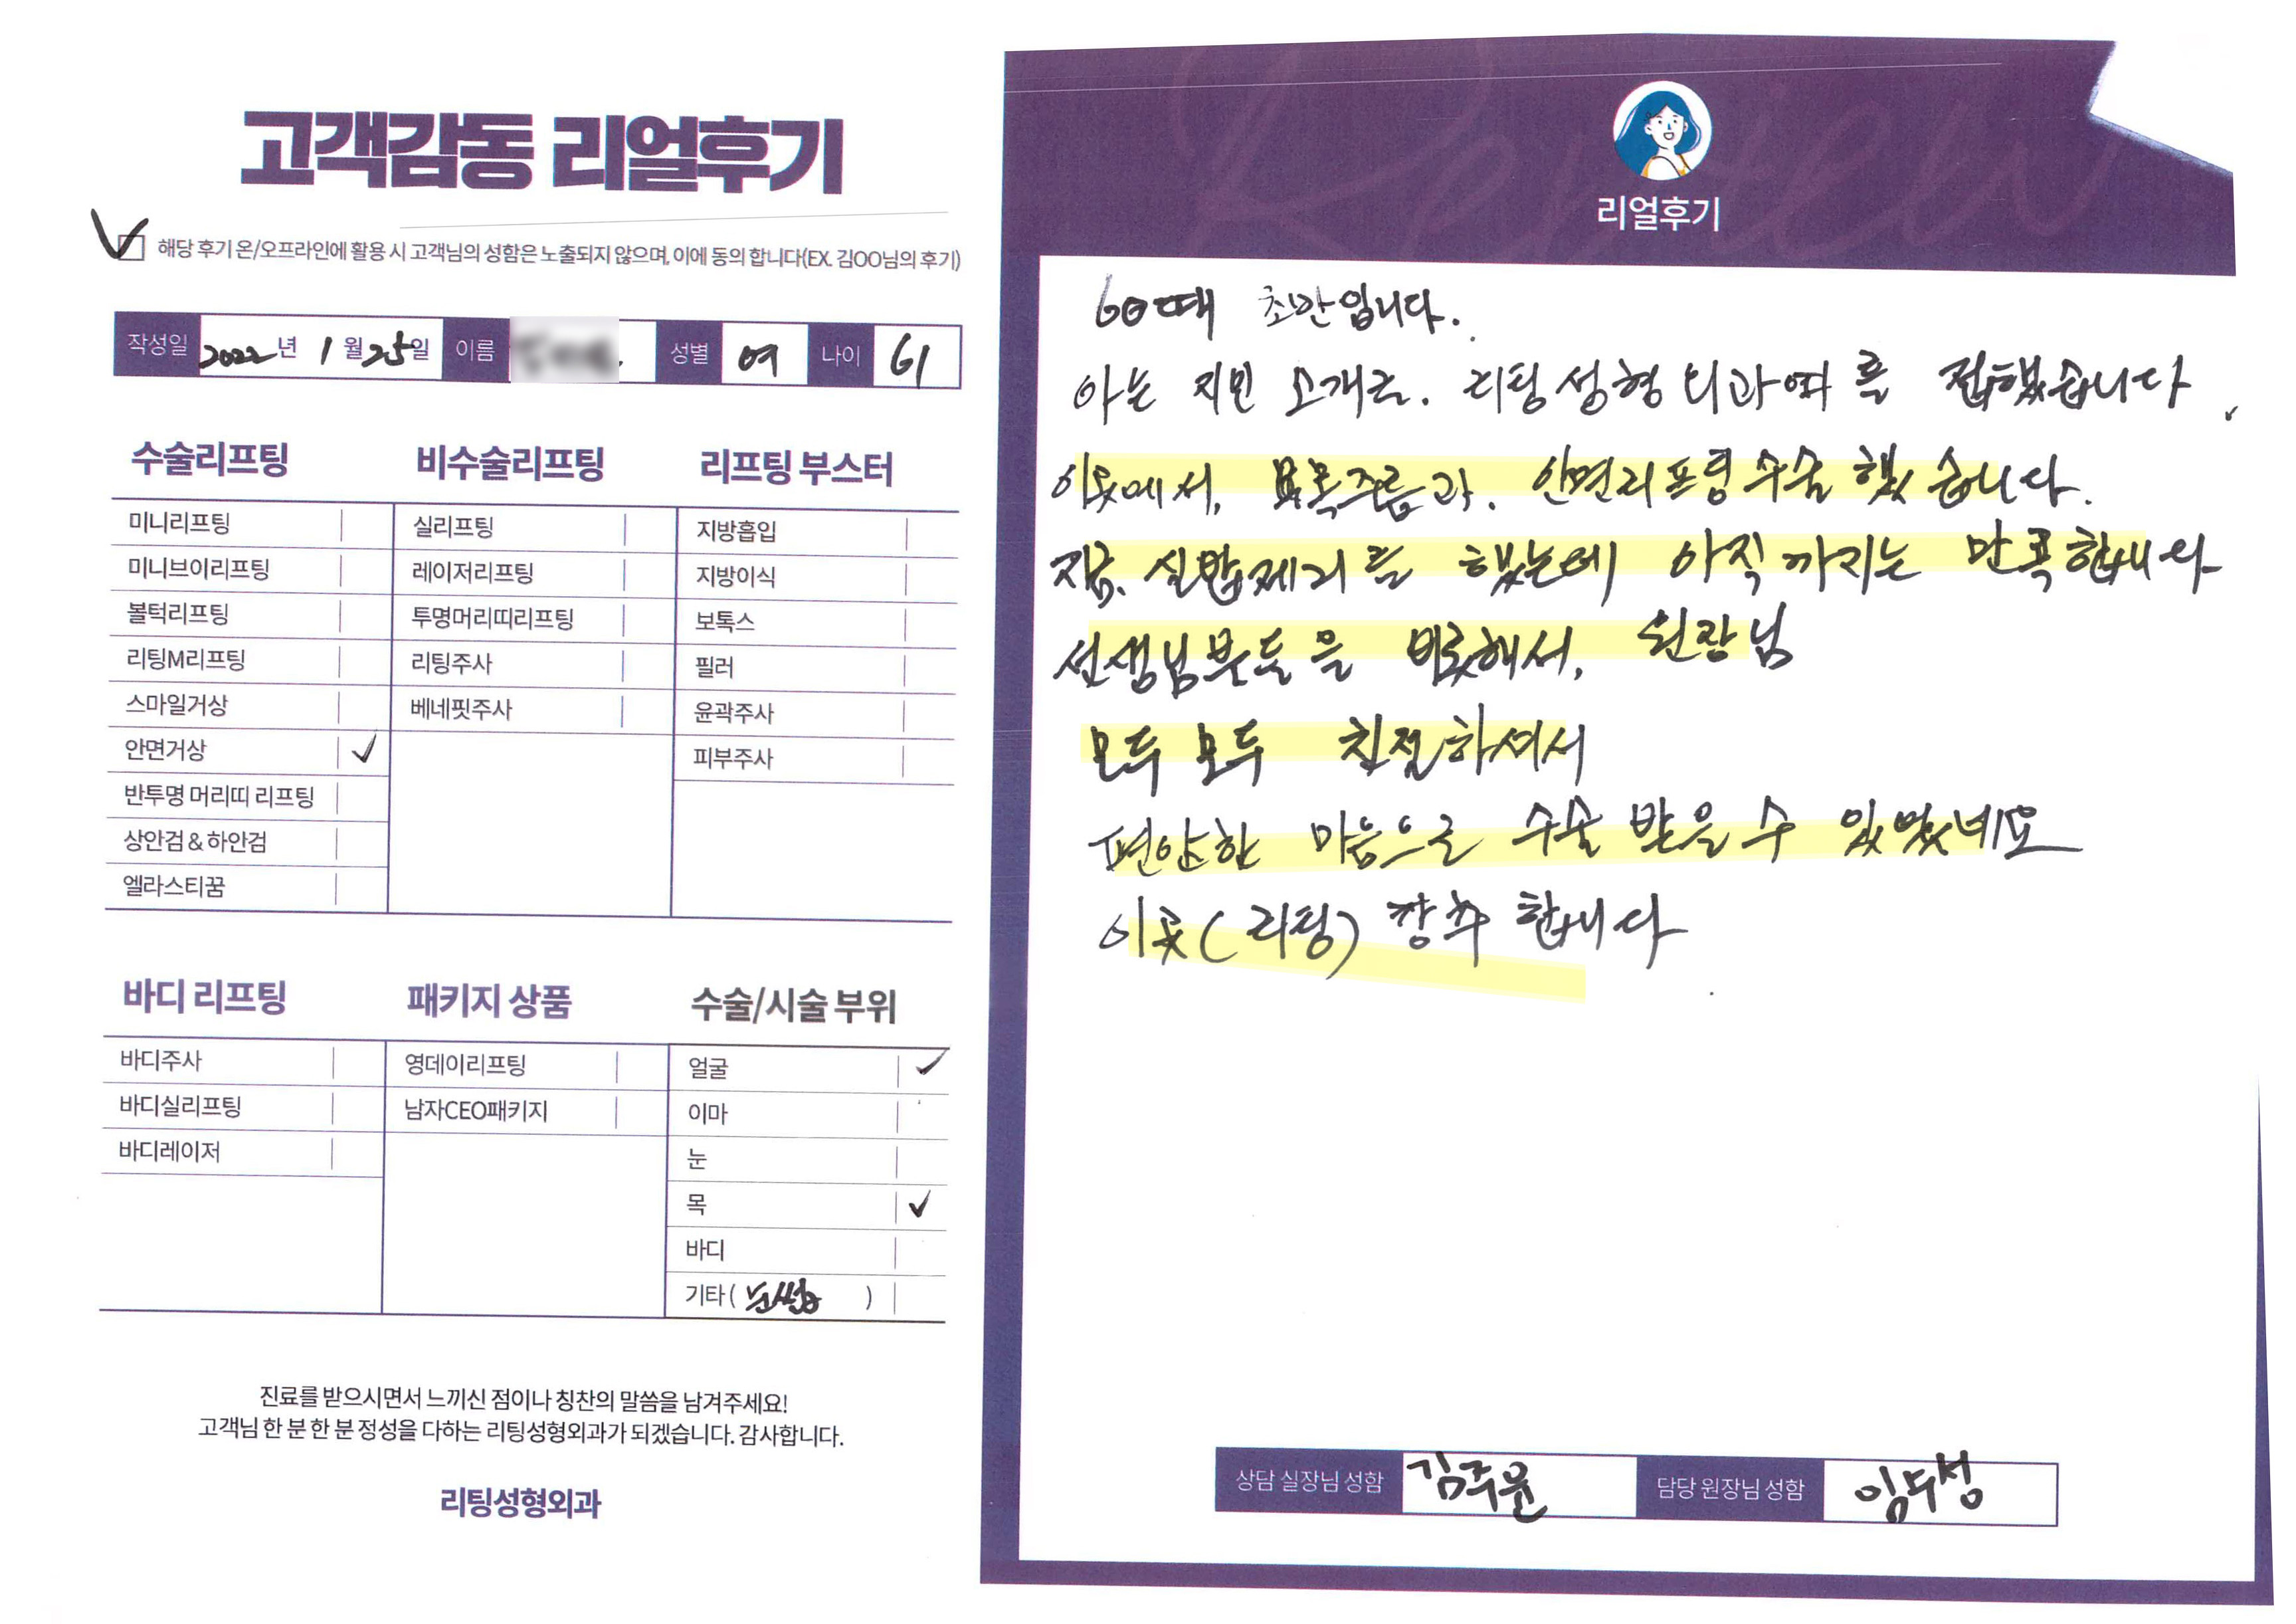 고객감동 리얼후기
해당 후기 온/오프라인에 활용 시 고객님의 성함은 노출되지 않으며, 이에 동의 합니다(EX. 김OO님의 후기)
작성일 2022년 1월 25일 이름 성별 여 나이 61
수술리프팅
미니리프팅
미니브이리프팅
볼턱리프팅
리팅M리프팅
스마일거상
안면거상 ✓
반투명 머리띠 리프팅
상안검 & 하안검
엘라스티꿈
비수술리프팅
실리프팅
레이저리프팅
투명머리띠리프팅
리팅주사
베네핏주사
리프팅 부스터
지방흡입
지방이식
보톡스
필러
윤곽주사
피부주사
바디 리프팅
바디주사
바디실리프팅
바디레이저
패키지 상품
영데이리프팅
남자CEO패키지
수술/시술 부위
얼굴 ✓
이마
눈
목 ✓
바디
기타 ( 눈썹 )
진료를 받으시면서 느끼신 점이나 칭찬의 말씀을 남겨주세요!
고객님 한 분 한 분 정성을 다하는 리팅성형외과가 되겠습니다. 감사합니다.
리팅성형외과
Review
리얼후기
60때 초반입니다.
아는 지인 소개로. 리팅성형외과여를 접했습니다.
이곳에서, 목주름과. 안면리프팅수술했습니다.
지금, 실밥제거를 했는데 아직까지는 만족합니다
선생님분들을 비롯해서, 원장님
모두모두 친절하셔서
편안한 마음으로 수술 받을 수 있었네요
이곳(리팅) 강추 합니다
상담 실장님 성함 김주윤 담당 원장님 성함 임부성